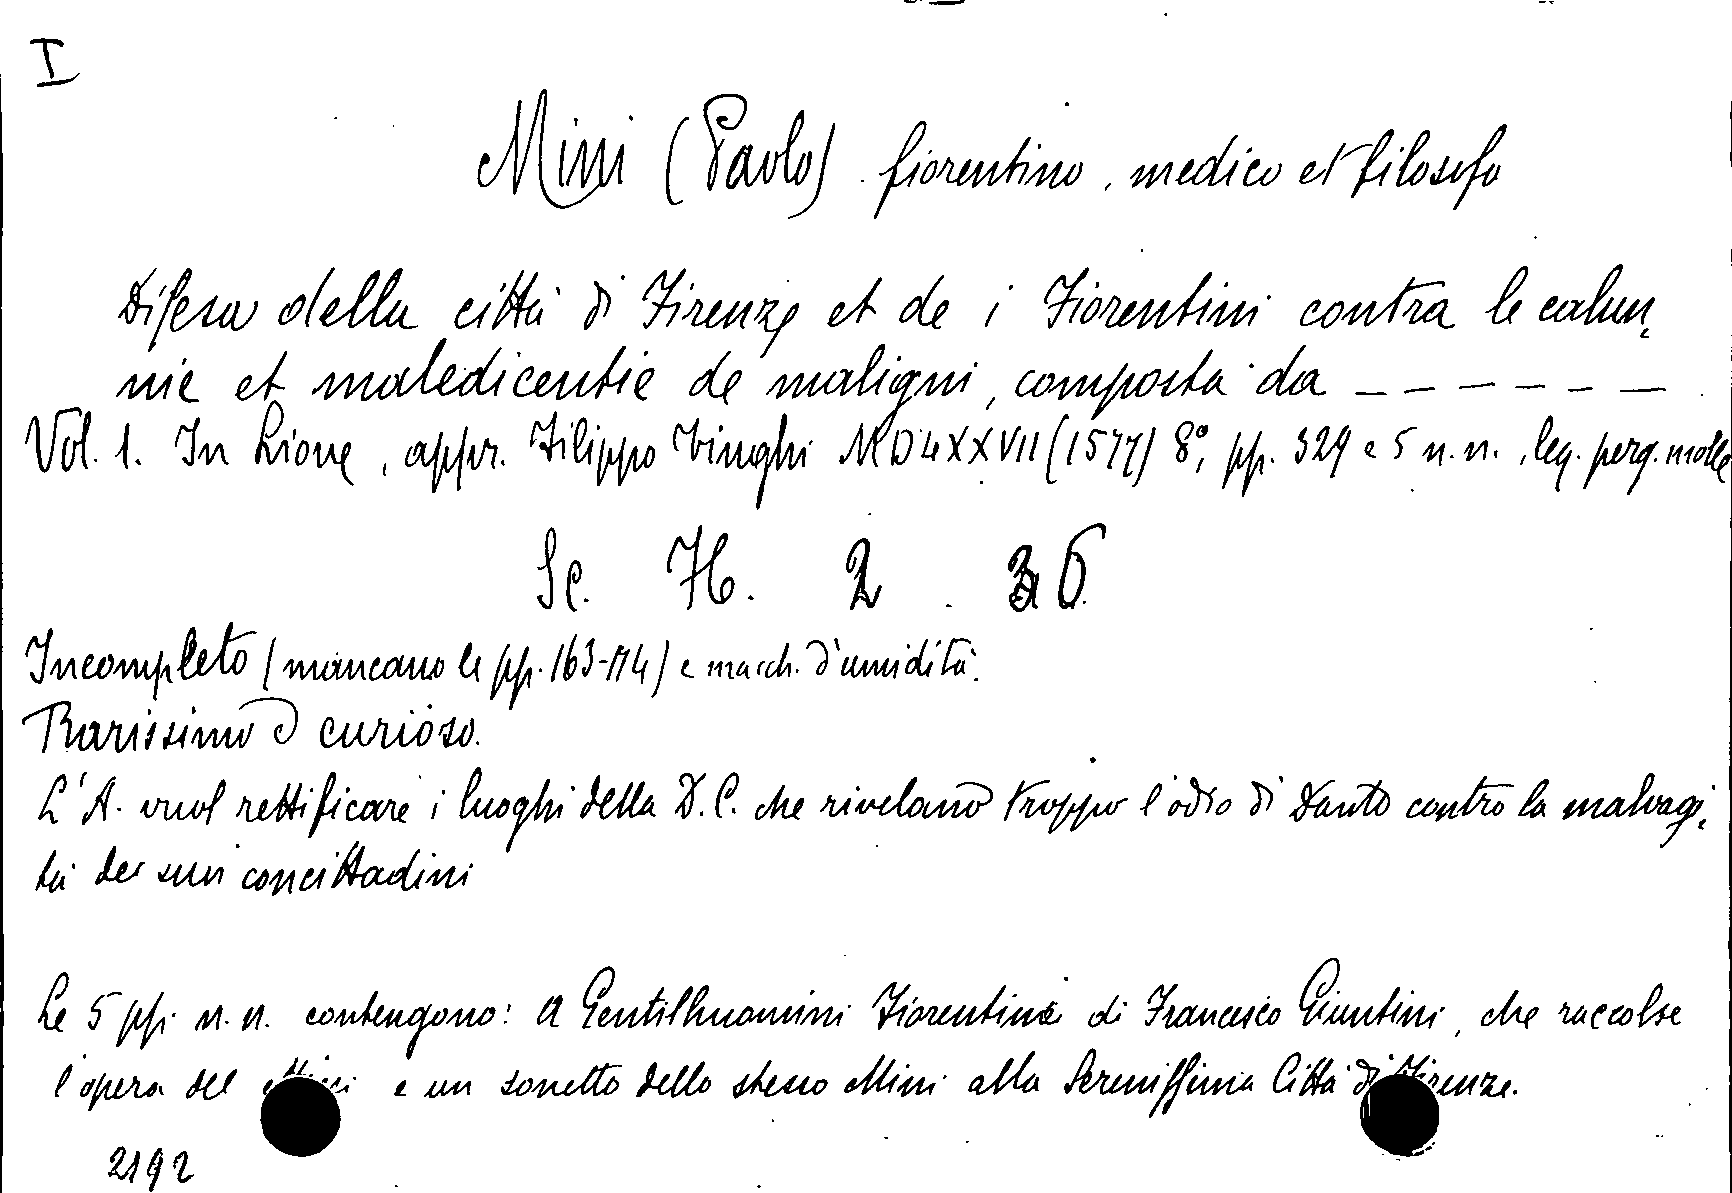 I
Mini (Paolo) fiorentino, medico et filosofo
Difesa della città di Firenze et de i Fiorentini contra le calun,
nie et maledicentie de maligni, composta da _ _ _ _ _ _ _
Vol. 1. In Lione, appr. Filippo Tinghi MDLXXVII (1577) 8°, pp. 329 e 5 n. n., leg. perg. molle
Sc. H. 2 . 6
Incompleto (mancano le pp. 163-174) e macch. d'umidità.
Rarissimo e curioso.
L'A. vuol rettificare i luoghi della D. C. che rivelano troppo l'odio di Dante contro la malvagi,
tà dei suoi concittadini
Le 5 pp. n. n. contengono: A Gentilhuomini Fiorentini di Francesco Giuntini, che raccolse
l'opera del Mini e un sonetto dello stesso Mini alla Serenissima Città di Firenze.
2192